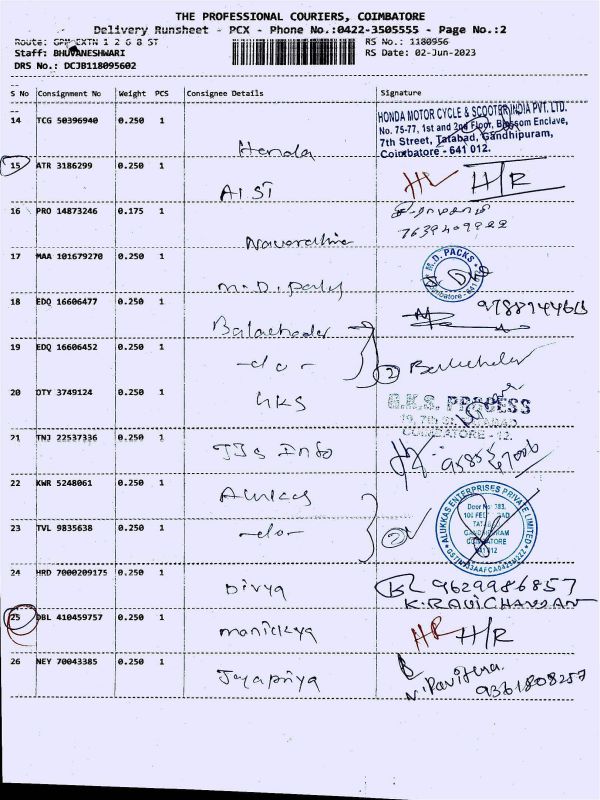 THE PROFESSIONAL COURIERS, COIMBATORE
Delivery Runsheet - PCX - Phone No.:0422-3505555 - Page No.:2
Route: GPM EXTN 1 2 6 8 ST RS No.: 1180956
Staff: BHUVANESHWARI RS Date: 02-Jun-2023
DRS No.: DCJB118095602
S No Consignment No Weight PCS Consignee Details Signature
14 TCG 50396940 0.250 1 Honda
HONDA MOTOR CYCLE & SCOOTER INDIA PVT. LTD.
No. 75-77, 1st and 2nd Floor, Blossom Enclave,
7th Street, Tatabad, Gandhipuram,
Coimbatore - 641 012.
15 ATR 3186299 0.250 1 AIST H/R
16 PRO 14873246 0.175 1
17 MAA 101679270 0.250 1 M.D. Packs
M.D. PACKS
Coimbatore - 641
18 EDQ 16606477 0.250 1 9788144613
19 EDQ 16606452 0.250 1 -do- 2
20 OTY 3749124 0.250 1 GKS
G.K.S. PROCESS
COIMBATORE - 12.
21 TNJ 22537336 0.250 1 Info
22 KWR 5248061 0.250 1 Alukkas
23 TVL 9835638 0.250 1 -do- 2
ALUKKAS ENTERPRISES PRIVATE LIMITED
Door No: 383,
24 HRD 7000209175 0.250 1 Divya 9629986857
K.RAVICHANDRAN
25 DBL 410459757 0.250 1 manickya HR H/R
26 NEY 70043385 0.250 1 Jayapriya
9361808257